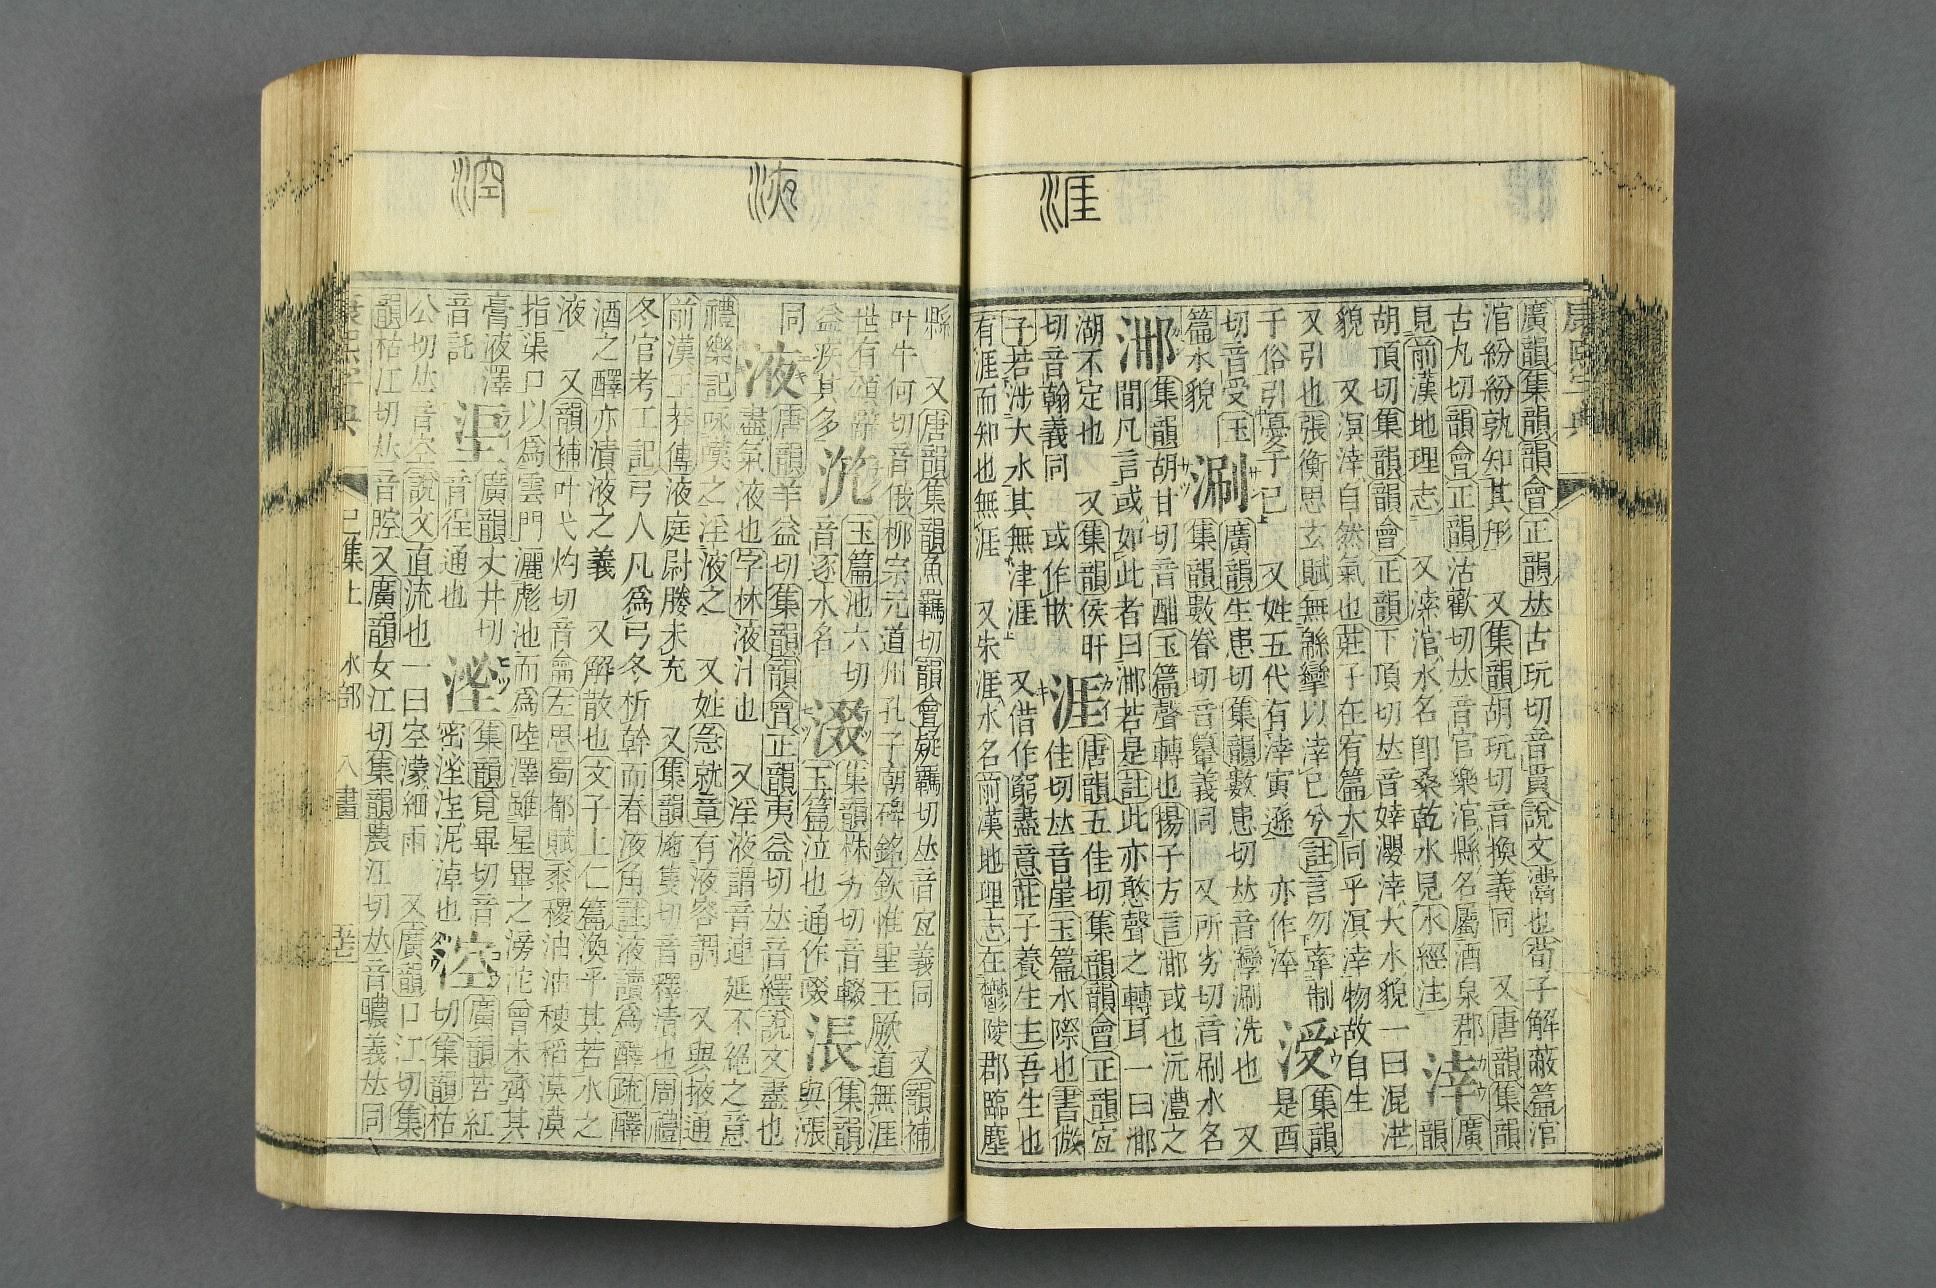 涯
康熙字典
廣韻集韻韻會正韻𠀤古玩切音貫說文㶗也荀子解蔽篇涫
涫紛紛孰知其形 又集韻胡玩切音換義同 又唐韻集韻
古丸切韻會正韻沽歡切𠀤音官樂涫縣名屬酒泉郡 涬 廣
見前漢地理志 又涬涫水名卽桑乾水見水經注 韻
胡頂切集韻韻會正韻下頂切𠀤音婞瀴涬大水貌一曰混茫
貌 又溟涬自然氣也莊子在宥篇大同乎溟涬物故自生
又引也張衡思玄賦無緜攣以涬己兮註言勿牽制 涭 集韻
于俗引憂于己 又姓五代有涬寅遜 亦作涬 是酉
切音受 玉 涮 廣韻生患切集韻數患切𠀤音灣涮洗也 又
篇水貌 集韻數眷切音㩔義同 又所劣切音刷水名
涮 集韻胡甘切音酣玉篇聲轉也揚子方言㴂或也沅澧之
間凡言或如此者曰㴂若是註此亦憨聲之轉耳一曰㴂
湖不定也 又集韻侯旰 涯 唐韻五佳切集韻韻會正韻宜
切音翰義同 或作㰹 佳切𠀤音崖玉篇水際也書微
子若涉大水其無津涯 又借作窮盡意莊子養生主吾生也
有涯而知也無涯 又朱涯水名前漢地理志在鬱陵郡臨塵
液
涳
縣 又唐韻集韻魚羈切韻會疑羈切𠀤音宜義同 又韻補
叶牛何切音俄柳宗元道州孔子廟碑銘欽惟聖王厥道無涯
世有頌辭 㳣 玉篇池六切 涰 集韻株劣切音輟 涱 集韻
益疾其多 音逐水名 玉篇泣也通作啜 與漲
同 液 唐韻羊益切集韻韻會正韻夷益切𠀤音繹說文盡也
盡氣液也字林液汁也 又淫液謂音連延不絕之意
禮樂記咏嘆之淫液之 又姓急就章有液容調 又與掖通
前漢王莽傳液庭尉勝未充 又集韻施隻切音釋淸也周禮
冬官考工記弓人凡爲弓冬析幹而春液角註液讀爲醳疏醳
酒之醳亦漬液之義 又解散也文子上仁篇渙乎其若水之
液 又韻補叶弋灼切音龠左思蜀都賦黍稷油油稉稻漠漠
指渠口以爲雲門灑滮池而爲陸澤雖星畢之滂沱曾未齊其
膏液澤 𣵛 廣韻丈井切 㴵 集韻覓畢切音 涳 廣韻苦紅
音託 音徎通也 密㴵泩泥淖也 切集韻枯
公切𠀤音空說文直流也一曰空濛細雨 又廣韻口江切集
韻枯江切𠀤音腔又廣韻女江切集韻農江切𠀤音鬞義𠀤同
康熙字典 巳集上 水部 八畫